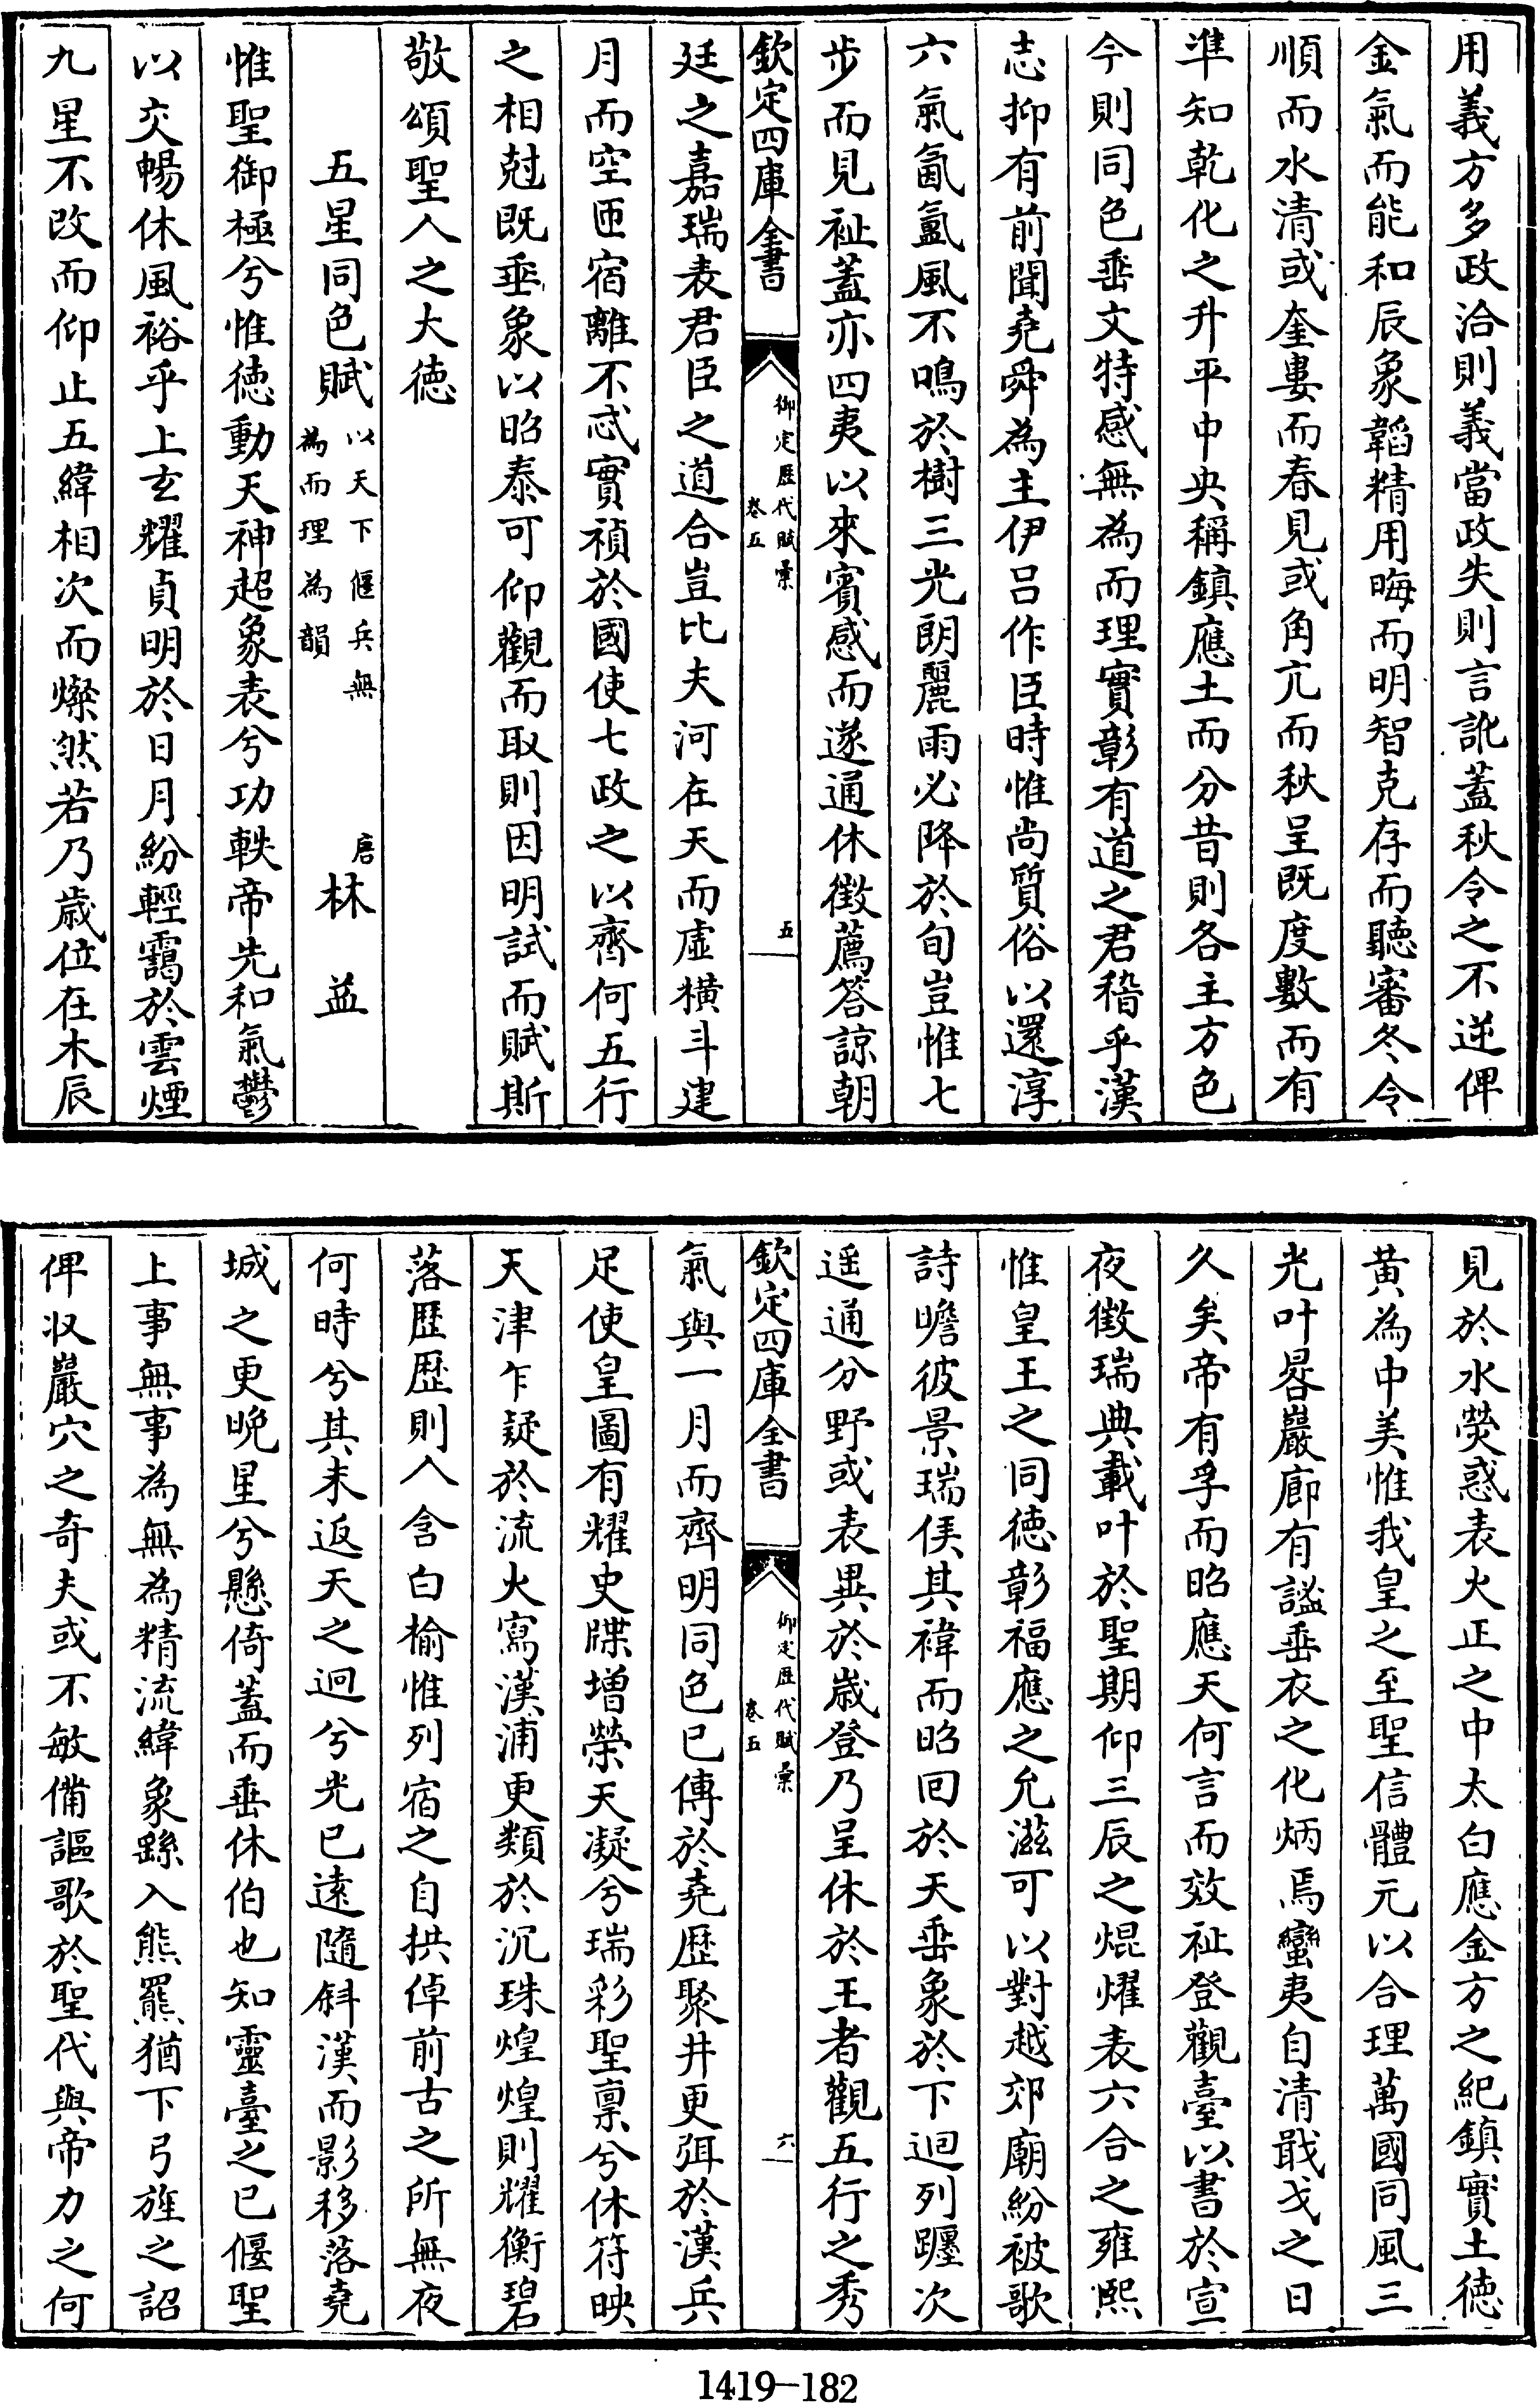 用義方多政洽則義當政失則言訛蓋秋令之不逆俾
金氣而能和辰象韜精用晦而明智克存而聽審冬令
順而水清或奎婁而春見或角亢而秋呈既度數而有
準知乾化之升平中央稱鎮應土而分昔則各主方色
今則同色垂文特感無為而理實彰有道之君稽乎漢
志抑有前聞堯舜為主伊呂作臣時惟尚質俗以還淳
六氣氤氳風不鳴於樹三光朗麗雨必降於旬豈惟七
步而見祉蓋亦四夷以來賓感而遂通休徴薦答諒朝
欽定四庫全書
御定歷代賦彙
卷五
五
廷之嘉瑞表君臣之道合豈比夫河在天而虛橫斗建
月而空匝宿離不忒實禎於國使七政之以齊何五行
之相尅既垂象以昭泰可仰觀而取則因明試而賦斯
敬頌聖人之大徳
五星同色賦 以天下偃兵無
為而理為韻
唐 林益
惟聖御極兮惟徳動天神超象表兮功軼帝先和氣鬱
以交暢休風裕乎上玄耀貞明於日月紛輕靄於雲煙
九星不改而仰止五緯相次而燦然若乃歳位在木辰
見於水熒惑表火正之中太白應金方之紀鎮實土徳
黄為中美惟我皇之至聖信體元以合理萬國同風三
光叶晷巖廊有謐垂衣之化炳焉蠻夷自清戢戈之日
久矣帝有孚而昭應天何言而效祉登觀臺以書於宣
夜徴瑞典載叶於聖期仰三辰之焜燿表六合之雍熙
惟皇王之同徳彰福應之允滋可以對越郊廟紛被歌
詩瞻彼景瑞俟其褘而昭回於天垂象於下迴列躔次
遥通分野或表異於歳登乃呈休於王者觀五行之秀
欽定四庫全書
御定歷代賦彙
卷五
六
氣與一月而齊明同色已傳於堯歴聚井更弭於漢兵
足使皇圖有耀史牒增榮天凝兮瑞彩聖禀兮休符映
天津乍疑於流火寫漢浦更類於沉珠煌煌則耀衡碧
落歴歴則入含白榆惟列宿之自拱倬前古之所無夜
何時兮其未返天之迴兮光已遠隨斜漢而影移落堯
城之更晚星兮懸倚蓋而垂休伯也知靈臺之已偃聖
上事無事為無為精流緯象繇入熊羆猶下弓旌之詔
俾収巖穴之奇夫或不敏備謳歌於聖代與帝力之何
1419-182